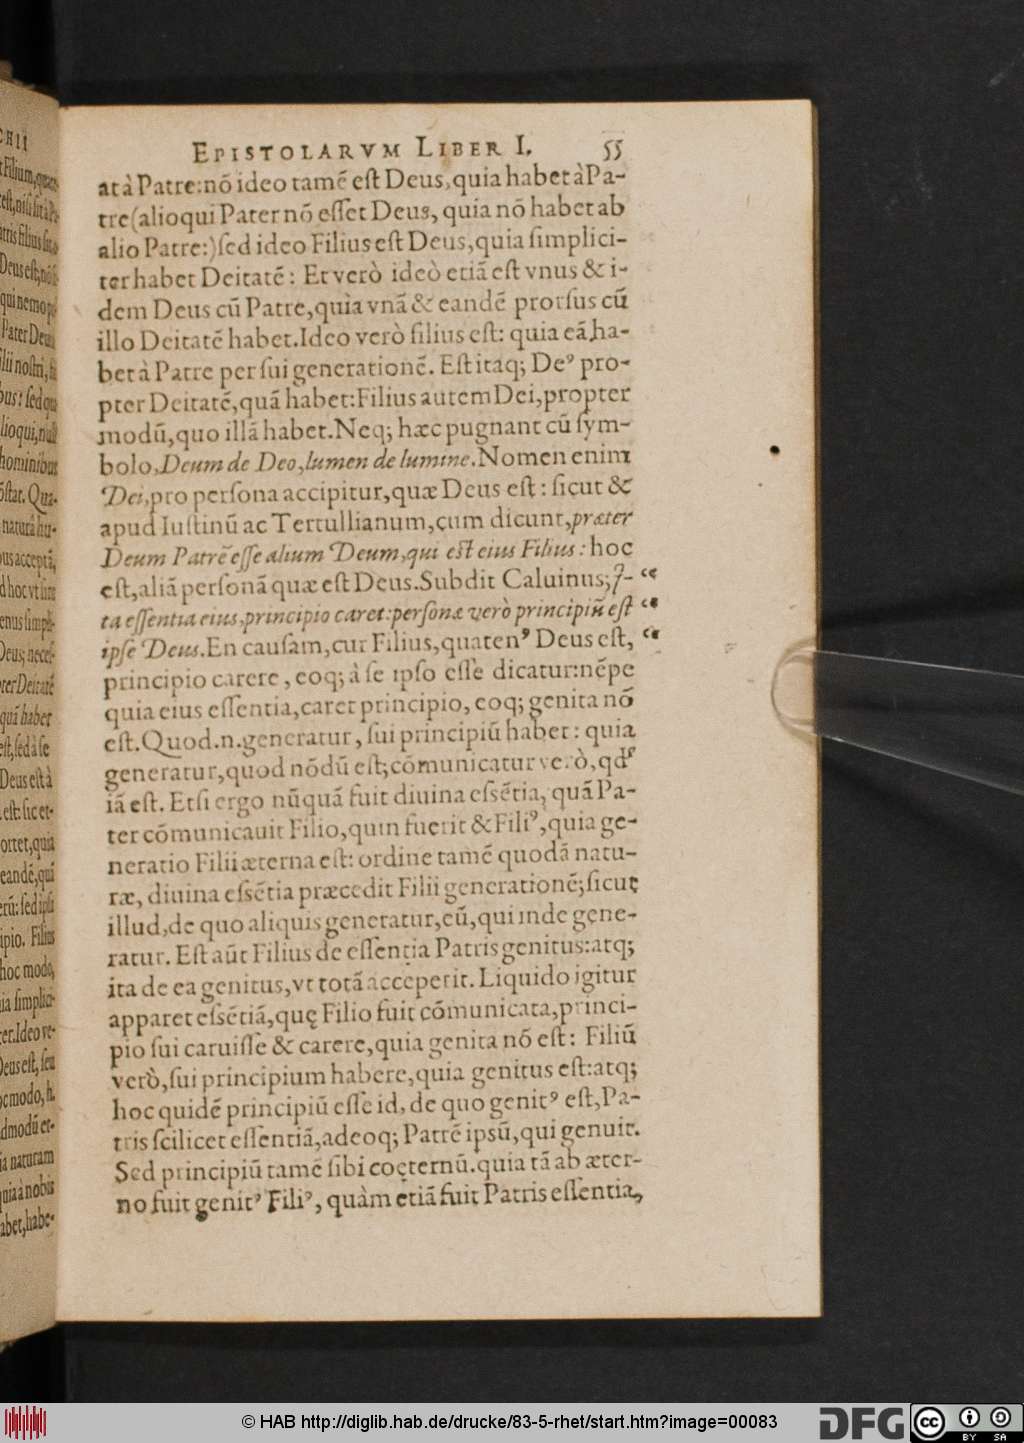 EPISTOLARVM LIBER I. 55
at à Patre: nõ ideo tamẽ eſt Deus, quia habet à Pa-
tre (alioqui Pater nõ eſſet Deus, quia nõ habet ab
alio Patre:) ſed ideo Filius eſt Deus, quia ſimplici-
ter habet Deitatẽ: Et verò ideò etiã eſt vnus & i-
dem Deus cũ Patre, quia vnã & eandẽ prorſus cũ
illo Deitatẽ habet. Ideo verò filius eſt: quia eã ha-
bet à Patre per ſui generationẽ. Eſt itaq; Deꝰ pro-
pter Deitatẽ, quã habet: Filius autem Dei, propter
modũ, quo illã habet. Neq; hæc pugnant cũ ſym-
bolo, Deum de Deo, lumen de lumine. Nomen enim
Dei, pro perſona accipitur, quæ Deus eſt: ſicut &
apud Iuſtinũ ac Tertullianum, cum dicunt, præter
Deum Patrẽ eſſe alium Deum, qui eſt eius Filius: hoc
eſt, aliã perſonã quæ eſt Deus. Subdit Caluinus; I- “
ta eſſentia eius, principio caret: perſonæ verò principiũ eſt “
ipſe Deus. En cauſam, cur Filius, quatenꝰ Deus eſt, “
principio carere, eoq; à ſe ipſo eſſe dicatur: nẽpe
quia eius eſſentia, caret principio, eoq; genita nõ
eſt. Quod .n. generatur, ſui principiũ habet: quia
generatur, quod nõdũ eſt; cõmunicatur verò, qđ
iã eſt. Etſi ergo nũquã fuit diuina eſsẽtia, quã Pa-
ter cõmunicauit Filio, quin fuerit & Filiꝰ, quia ge-
neratio Filii æterna eſt: ordine tamẽ quodã natu-
ræ, diuina eſsẽtia præcedit Filii generationẽ; ſicut
illud, de quo aliquis generatur, eũ, qui inde gene-
ratur. Eſt aũt Filius de eſſentia Patris genitus: atq;
ita de ea genitus, vt totã acceperit. Liquido igitur
apparet eſsẽtiã, quę Filio fuit cõmunicata, princi-
pio ſui caruiſſe & carere, quia genita nõ eſt: Filiũ
verò, ſui principium habere, quia genitus eſt: atq;
hoc quidẽ principiũ eſſe id, de quo genitꝰ eſt, Pa-
tris ſcilicet eſſentiã, adeoq; Patrẽ ipsũ, qui genuit.
Sed principiũ tamẽ ſibi coęternũ. quia tã ab æter-
no fuit genitꝰ Filiꝰ, quàm etiã fuit Patris eſſentia,
© HAB http://diglib.hab.de/drucke/83-5-rhet/start.htm?image=00083
DFG
cc BY SA